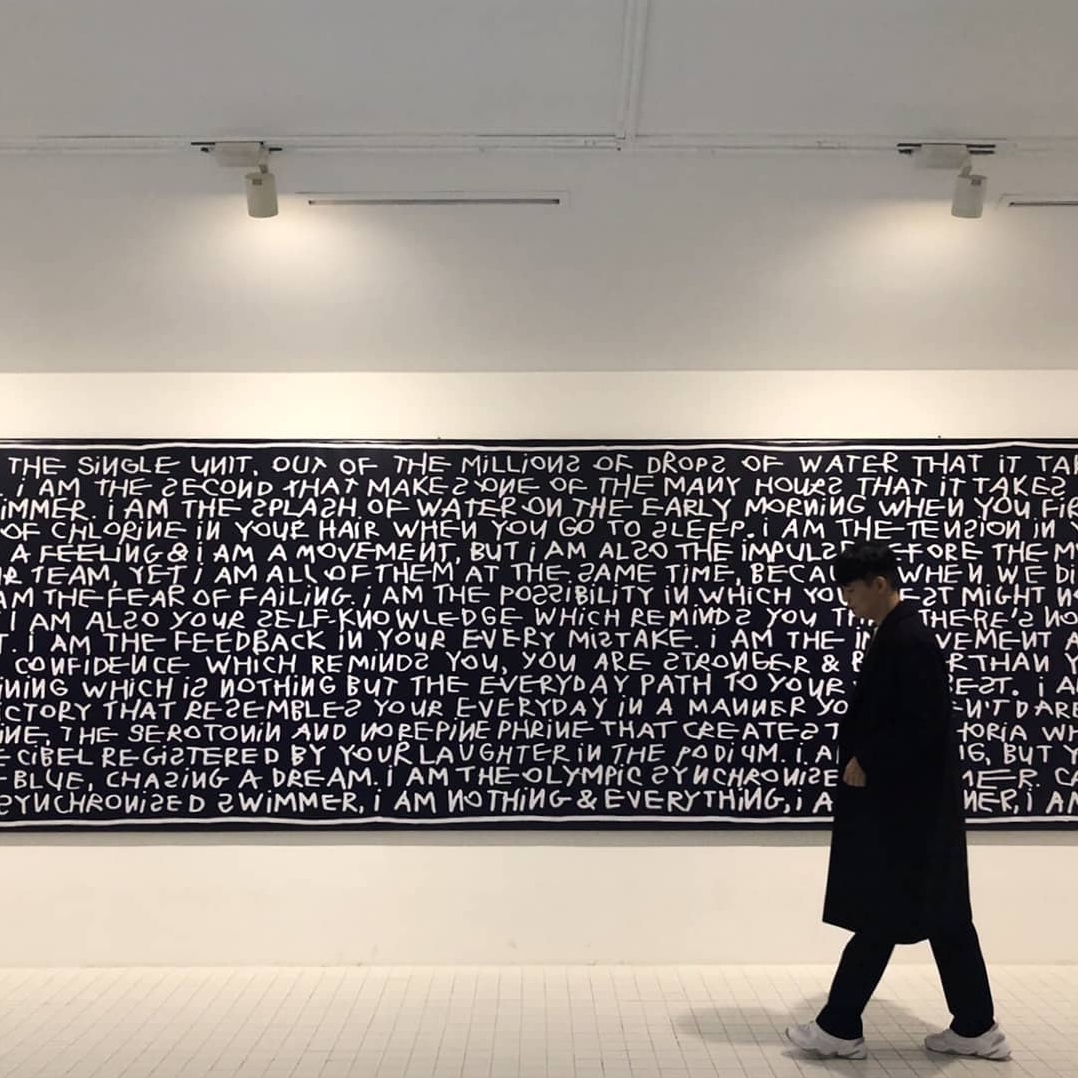 THE SINGLE UNIT, OUT OF THE MILLIONS OF DROPS OF WATER THAT IT
I AM THE SECOND THAT MAKES ONE OF THE MANY HOURS THAT IT TAKES
I AM THE SPLASH OF WATER ON THE EARLY MORNING WHEN YOU
OF CHLORINE IN YOUR HAIR WHEN YOU GO TO SLEEP. I AM THE TENSION IN
A FEELING & I AM A MOVEMENT, BUT I AM ALSO THE THE
TEAM, YET I AM ALL OF THEM AT THE SAME TIME, WHEN WE
AM THE FEAR OF FAILING. I AM THE POSSIBILITY IN WHICH MIGHT
I AM ALSO YOUR SELF-KNOWLEDGE WHICH REMINDS YOU THERE'S
I AM THE FEEDBACK IN YOUR EVERY MISTAKE. I AM THE
CONFIDENCE WHICH REMINDS YOU, YOU ARE STRONGER & THAN
WHICH IS NOTHING BUT THE EVERYDAY PATH TO YOUR I
THAT RESEMBLES YOUR EVERYDAY IN A MANNER DARE
THE SEROTONIN AND NOREPINEPHRINE THAT CREATES
REGISTERED BY YOUR LAUGHTER IN THE PODIUM. I BUT
BLUE, CHASING A DREAM. I AM THE OLYMPIC
SYNCHRONISED SWIMMER, I AM NOTHING & EVERYTHING, I I